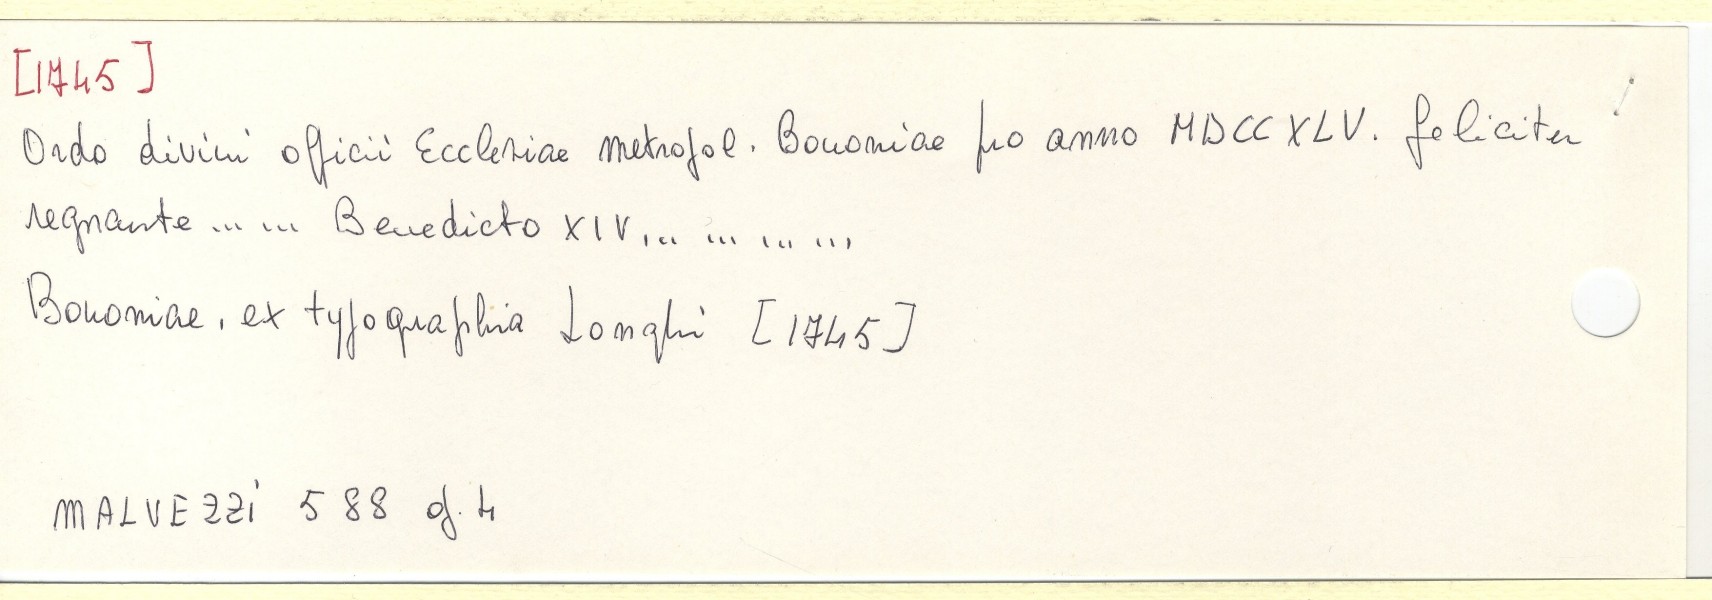 [1745]
Ordo divini officii Ecclesiae metropol. Bononiae pro anno MDCCXLV. feliciter
regnante ... ... Benedicto XIV... ... ... ...
Bononiae, ex typographia Longhi [1745]
MALVEZZI 588 of. 4